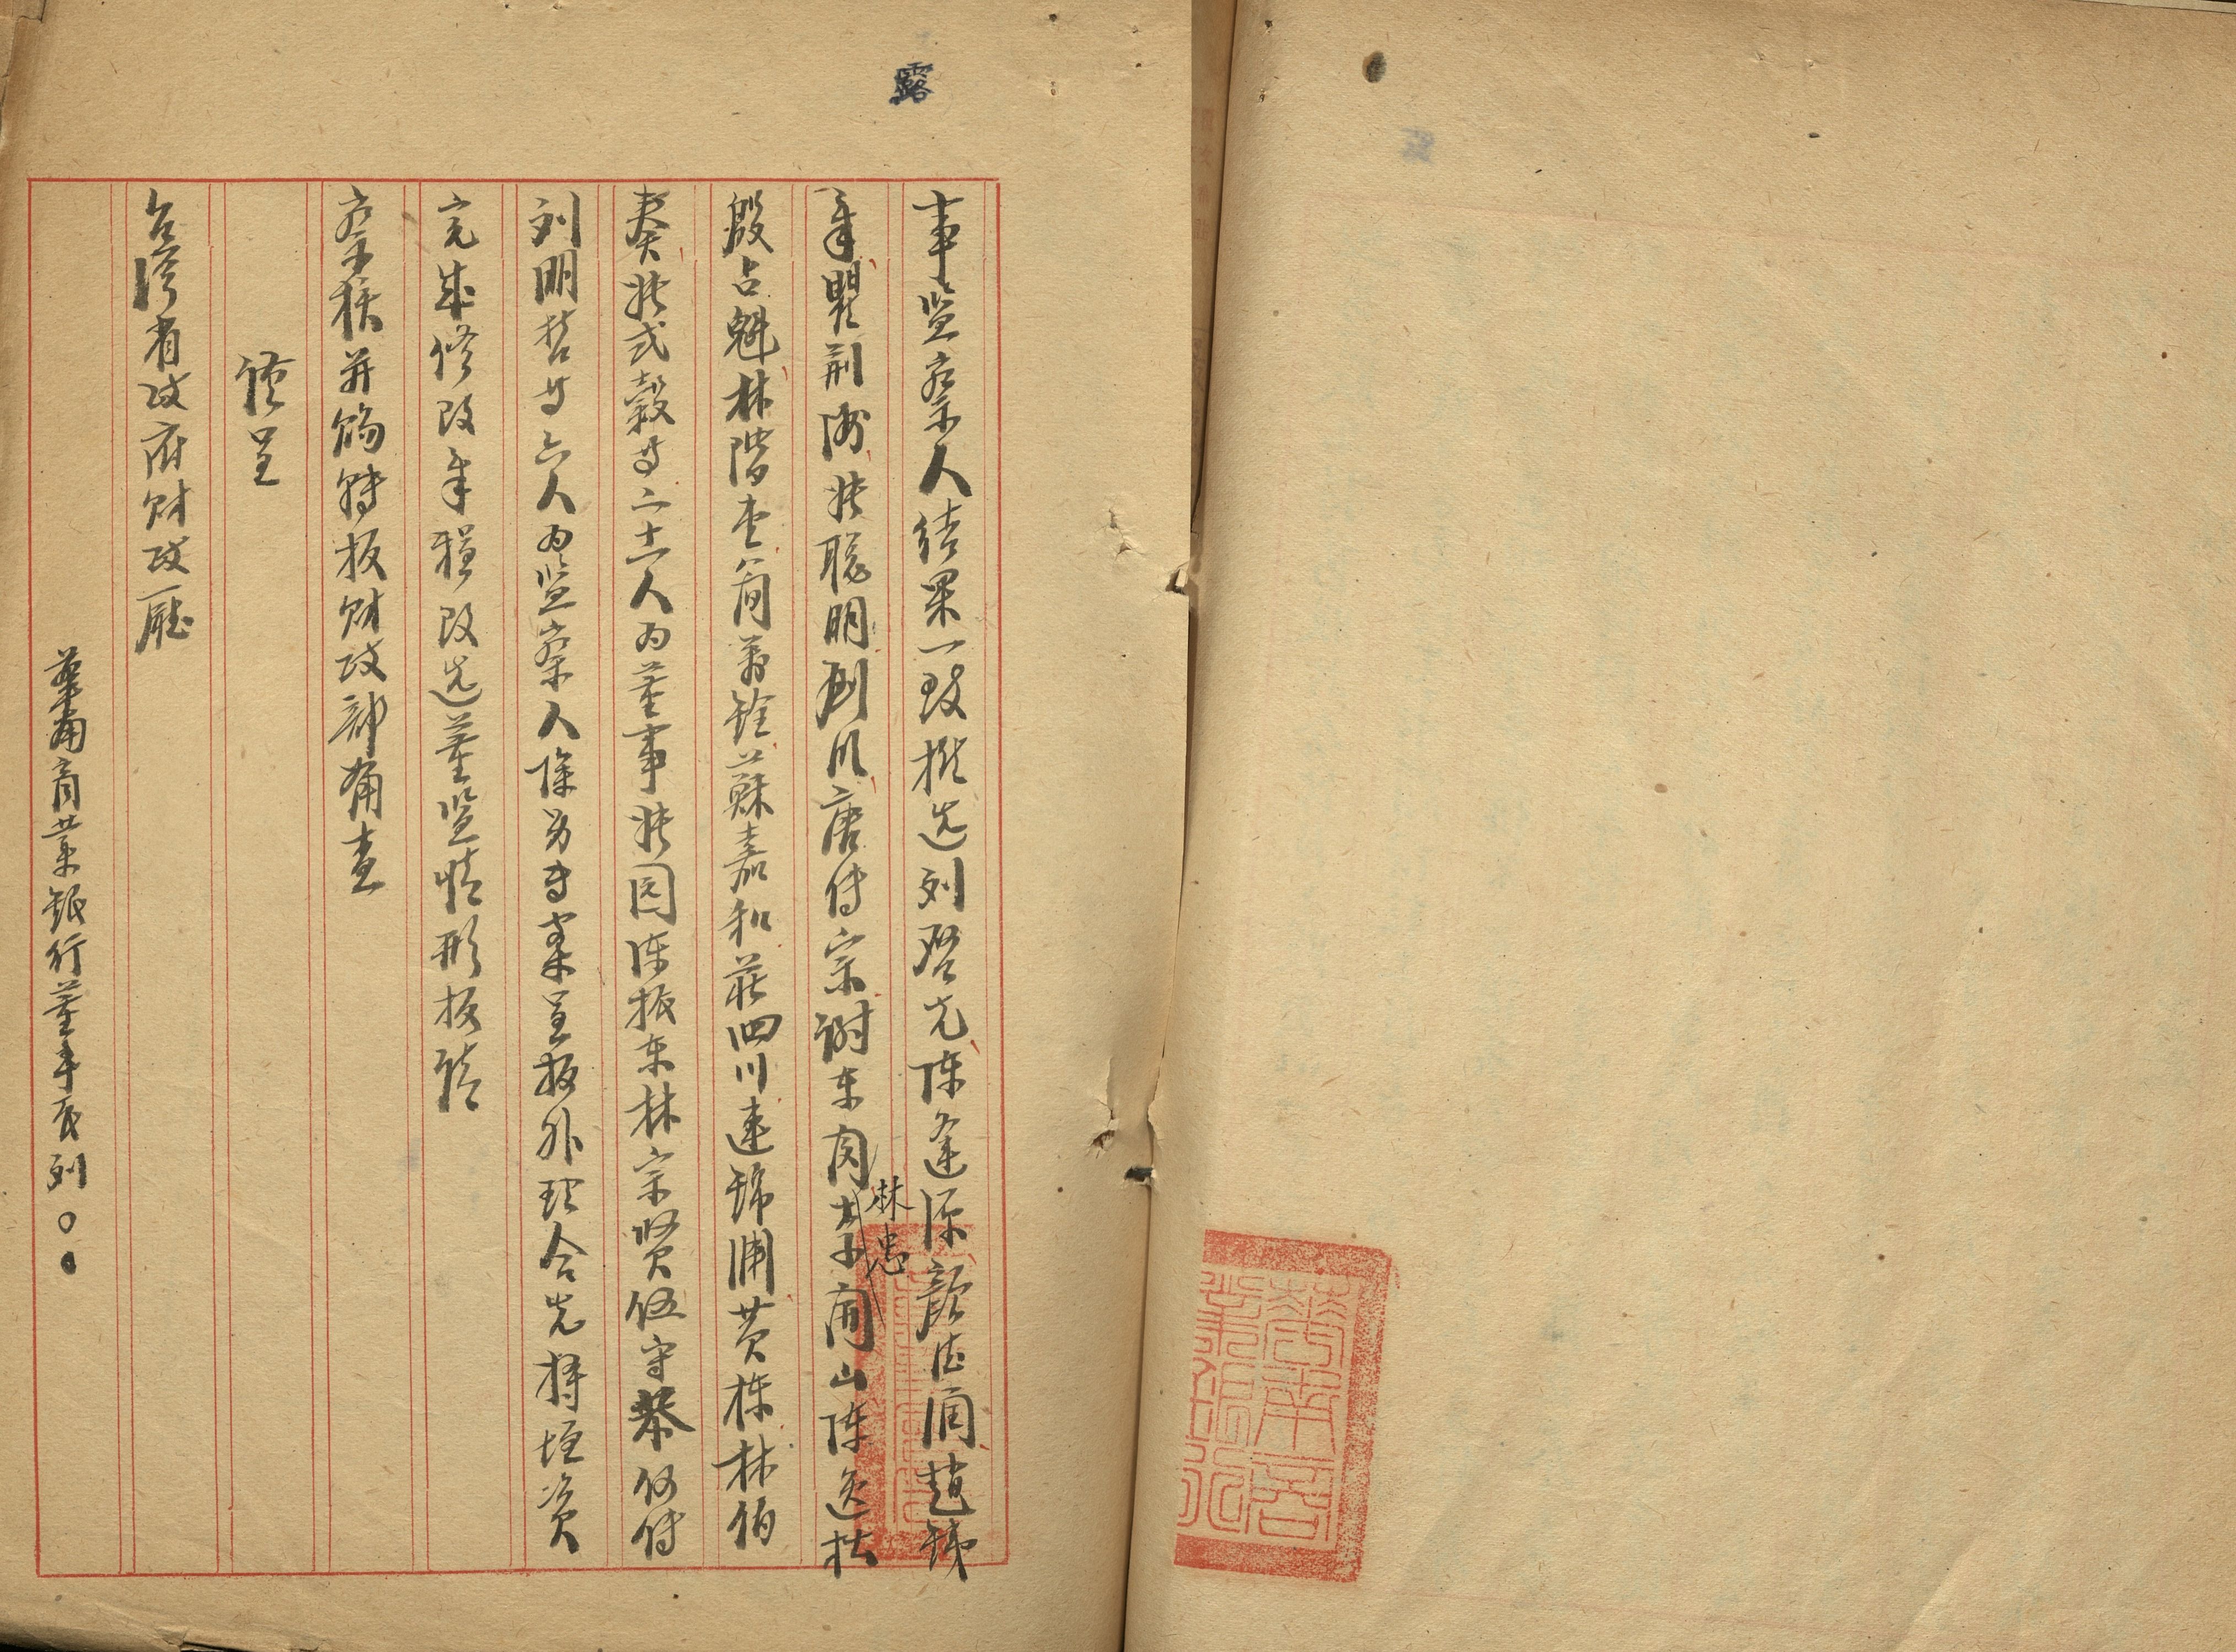 露
事监察人结果一致推选刘启光陈逢源颜德润赵锑
瞿荆洲张聪明刘明唐传宗谢东闵 开山陈逸松
林忠
殷占魁林阶堂 苏嘉和庄四川连锦 黄栋林伯
奏张式穀等二十一人为董事张园陈振东林宗贤伍守恭何传
刘明哲等六人为监察人除另专案呈报外理合先将增资
完成修改章程改选董监情形报请
察核并赐转报财政部备查
谨呈
台湾省政府财政厅
华南商业银行董事长刘〇〇
华南商
业银行